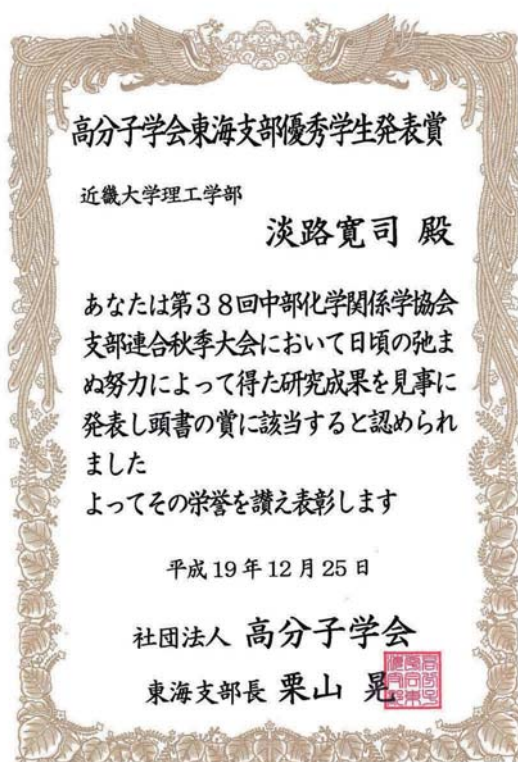 高分子学会東海支部優秀学生発表賞
近畿大学理工学部
淡路寛司 殿
あなたは第38回中部化学関係学協会
支部連合秋季大会において日頃の弛ま
ぬ努力によって得た研究成果を見事に
発表し頭書の賞に該当すると認められ
ました
よってその栄誉を讃え表彰します
平成19年12月25日
社団法人 高分子学会
東海支部長 栗山 晃